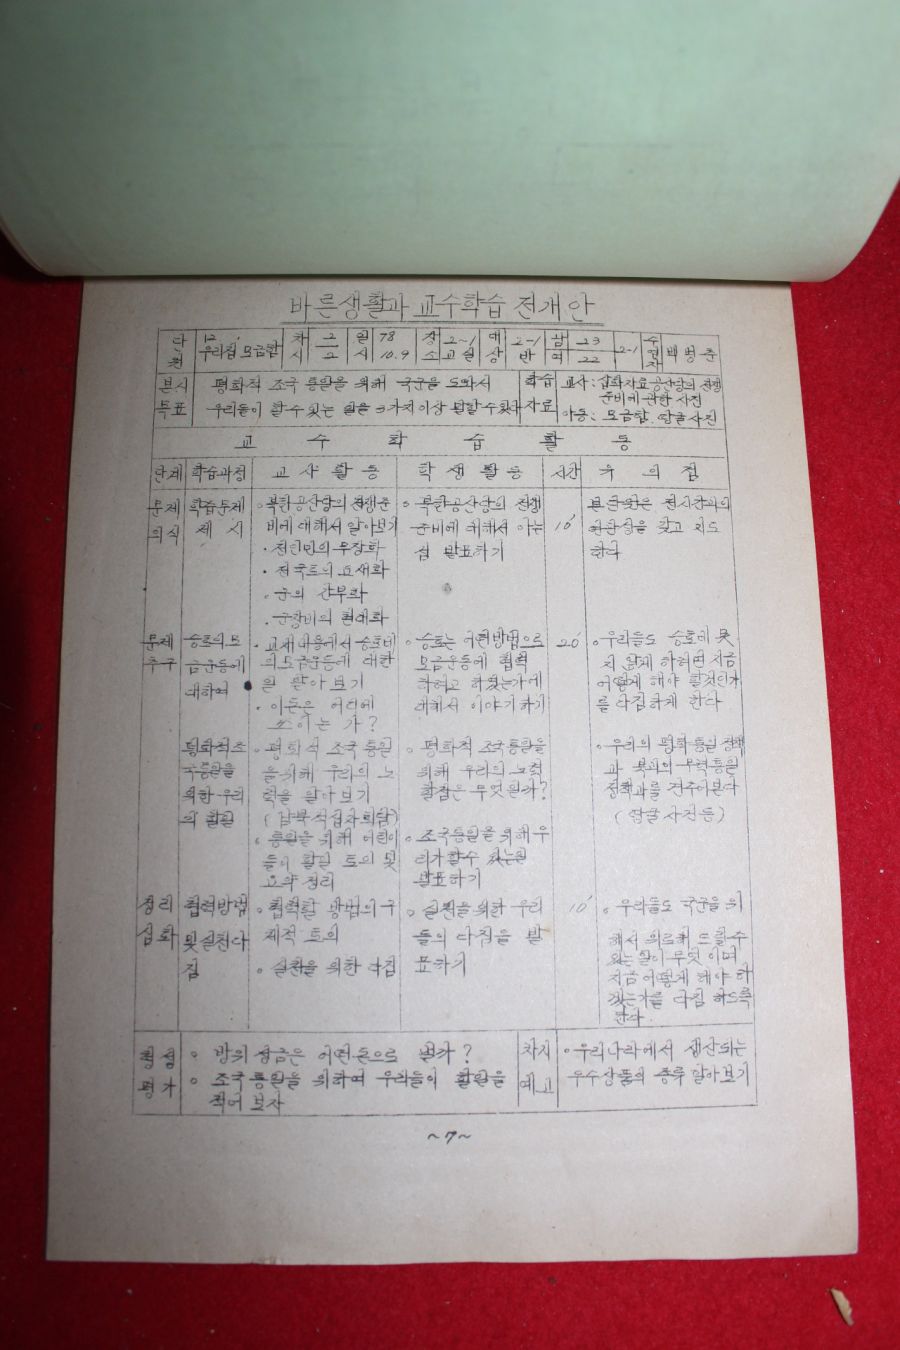 바른생활과 교수학습 전개안
단원 12. 우리집 모금함 차시 2/2 일시 78 10.9 장소 2~1 교실 대상 2-1 반 남 23 여 22 2-1 수업자 백명춘
본시 목표 평화적 조국 통일을 위해 국군을 도와서
우리들이 할 수 있는 일을 3가지 이상 말할 수 있다
학습 자료 교사: 삽화자료 공산당의 전쟁
준비에 관한 사진
아동: 모금함. 땅굴 사진
교 수 학 습 활 동
단계 학습과정 교사활동 학생활동 시간 유의점
문제 의식
학습문제
제시
◦ 북한공산당의 전쟁준
비에 대해서 알아보기
· 전인민의 무장화
· 전국토의 요새화
◦ 군의 간부화
· 군장비의 현대화
◦ 북한공산당의 전쟁
준비에 대해서 아는
점 발표하기
10′
찾고 지도
한다
문제 추구
승호의 모
금운동에
대하여
· 교재내용에서 승호네
의 모금운동에 대한
일 알아보기
· 이돈은 어디에
쓰이는가?
◦ 승호는 어떤방법으로
모금운동에 협력
하려고 하였는가에
대해서 이야기하기
20′
◦ 우리들도 승호에 못
지 않게 하려면 지금
어떻게 해야 할것인가
를 다짐하게 한다
평화적조
국통일을
위한 우리
의 할일
◦ 평화적 조국통일
을 위해 우리의 노
력을 알아보기
(남북적십자회담)
◦ 통일을 위해 어린이
들이 할일 토의 및
요약 정리
◦ 평화적 조국통일을
위해 우리의 노력
할점은 무엇일까?
◦ 조국통일을 위해 우
리가 할수 있는일
발표하기
◦ 우리의 평화통일 정책
과 북괴의 무력통일
정책과를 견주어본다
(땅굴 사건등)
정리 심화
협력방법
및 실천다
짐
◦ 협력할 방법의 구
체적 토의
◦ 실천을 위한 다짐
◦ 실천을 위한 우리
들의 다짐을 발
표하기
10′
◦ 우리들도 국군을 위
해서 위로해 드릴수
있는 일이 무엇이며
지금 어떻게 해야 하
겠는가를 다짐 하도록
한다.
형성 평가
◦ 방위성금은 어떤 돈으로 낼까?
◦ 조국통일을 위하여 우리들이 할일을
적어 보자
차시 예고
◦ 우리나라에서 생산되는
우수상품의 종류 알아보기
~7~